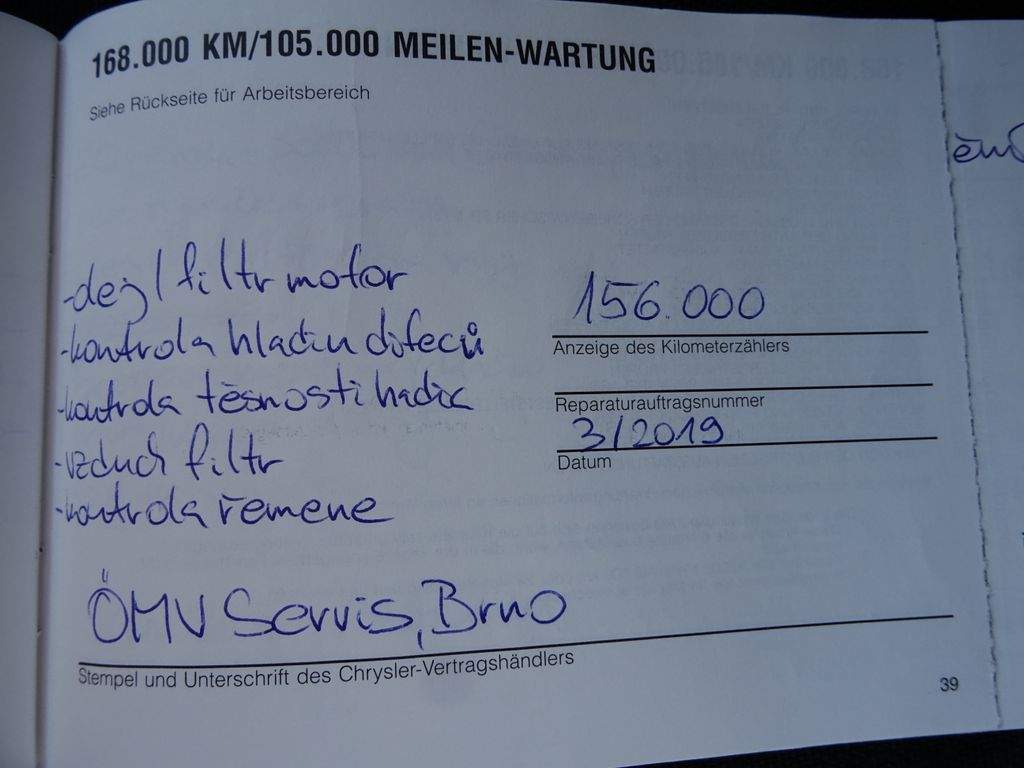 168.000 KM/105.000 MEILEN-WARTUNG
Siehe Rückseite für Arbeitsbereich
-olej / filtr motor
-kontrola hladin difeců
-kontrola těsnosti hadic
-vzduch filtr
-kontrola řemene
156.000
Anzeige des Kilometerzählers
Reparaturauftragsnummer
3/2019
Datum
ÖMV Servis, Brno
Stempel und Unterschrift des Chrysler-Vertragshändlers
39